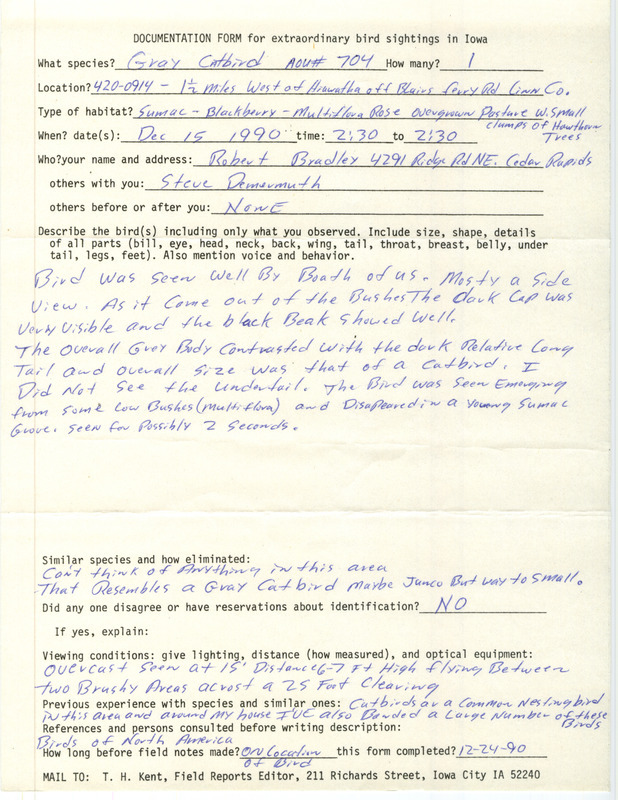 DOCUMENTATION FORM for extraordinary bird sightings in Iowa
What species? Gray Catbird AOU# 704 How many? 1
Location? 420-0914 - 1½ Miles West of Hiawatha off Blairs Ferry Rd Linn Co.
Type of habitat? Sumac - Blackberry - Multiflora Rose overgrown Pasture W. Small
clumps of Hawthorn
Trees
When? date(s): Dec 15 1990 time: 2:30 to 2:30
Who? your name and address: Robert Bradley 4291 Ridge Rd NE. Cedar Rapids
others with you: Steve Demermuth
others before or after you: None
Describe the bird(s) including only what you observed. Include size, shape, details
of all parts (bill, eye, head, neck, back, wing, tail, throat, breast, belly, under
tail, legs, feet). Also mention voice and behavior.
Bird was seen well By Boath of us. Mosty a side
View. As it Come out of the Bushes The dark Cap was
Very Visible and the black Beak showed well.
The overall Grey Body Contrasted with the dark Relative Long
Tail and overall size was that of a Catbird. I
Did Not see the Undertail. The Bird was seen Emerging
from some Low Bushes (Multiflora) and Disapeared in a young Sumac
Grove. seen for Possibly 2 seconds.
Similar species and how eliminated:
Con't think of Anything in this area
That Resembles a Gray Catbird maybe Junco But way to small.
Did any one disagree or have reservations about identification? NO
If yes, explain:
Viewing conditions: give lighting, distance (how measured), and optical equipment:
Overcast Seen at 15' Distance 6-7 Ft High flying Between
two Brushy Areas acrost a 25 Foot Clearing
Previous experience with species and similar ones: Catbirds are a Common Nesting bird
in this area and around my house I've also Banded a Large Number of these
Birds
References and persons consulted before writing description:
Birds of North America
How long before field notes made? ON Location this form completed? 12-24-90
of Bird
MAIL TO: T. H. Kent, Field Reports Editor, 211 Richards Street, Iowa City IA 52240